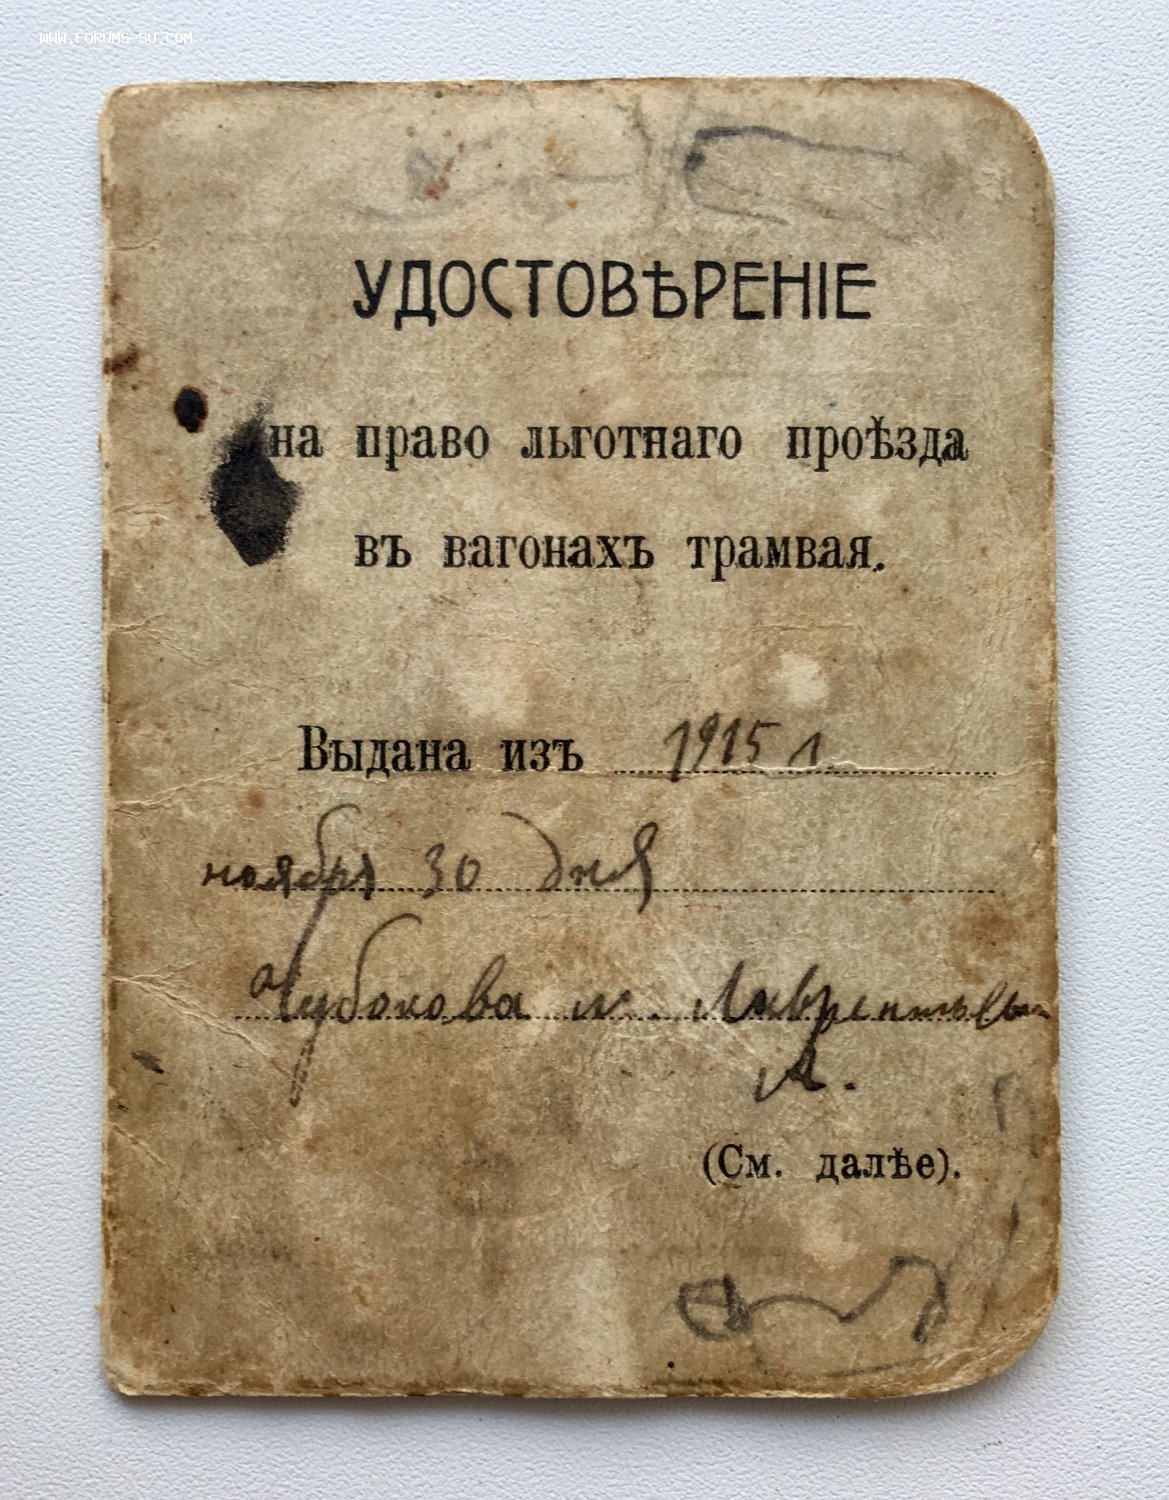 WWW.FORUMS-SU.COM
УДОСТОВѢРЕНІЕ
на право льготнаго проѣзда
въ вагонахъ трамвая.
Выдана изъ 1915 г.
ноября 30 дня
А.
(См. далѣе).